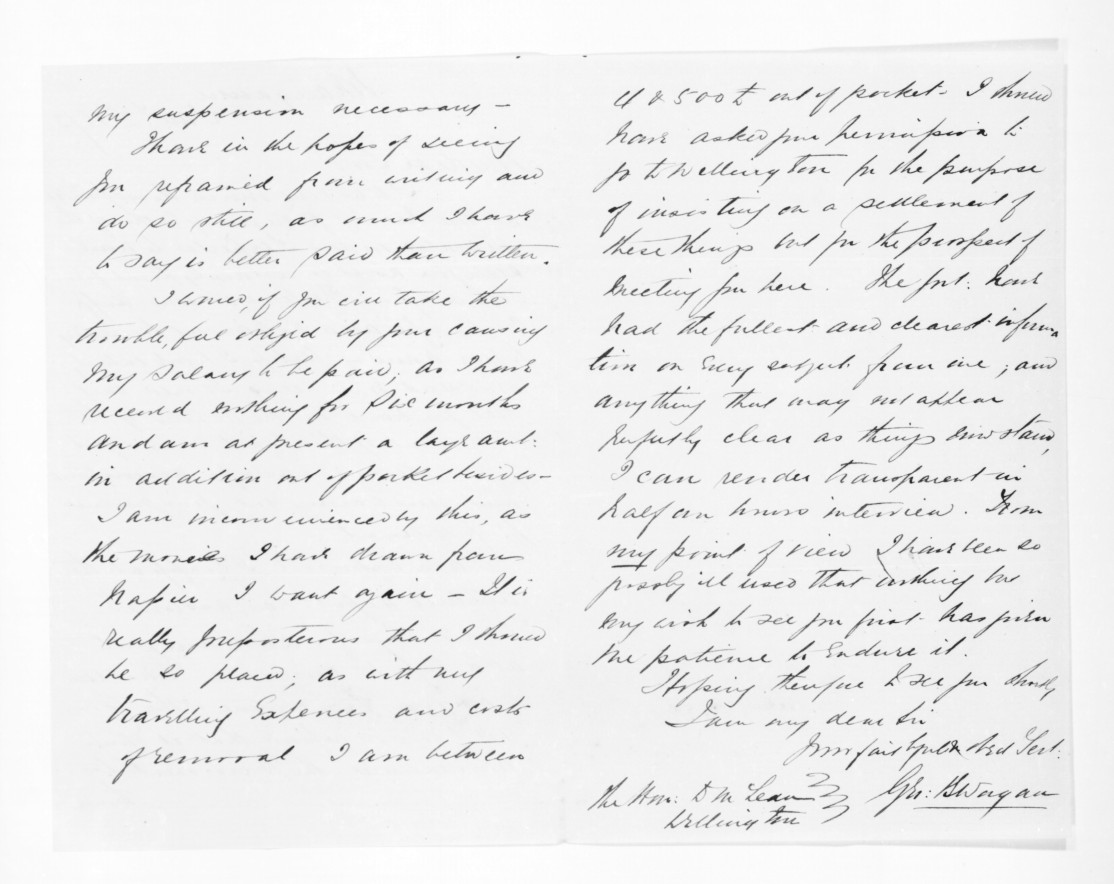 my suspension necessary -
I have in the hopes of seeing
you refrained from writing and
do so still, as much I have
to say is better said than written.
I would, if you will take the
trouble, feel obliged by your causing
my salary to be paid, as I have
received nothing for six months
and am at present a large amt:
in addition out of pocket besides -
I am inconvenienced by this, as
the monies I have drawn from
Napier I want again - It is
really preposterous that I should
be so placed; as with my
travelling Expences and costs
of removal I am between
4 & 500 £ out of pocket - I should
have asked your permission to
go to Wellington for the purpose
of insisting on a settlement of
these things but for the prospect of
meeting you here. The Govt. have
had the fullest and clearest informa
tion on every subject from me; and
anything that may not appear
perfectly clear as things now stand,
I can render transparent in
half an hours interview. From
my point of view I have been so
grossly ill used that nothing but
my wish to see you first has given
me patience to endure it.
Hoping therefore to see you shortly
I am my dear Sir
Your faithful & obed Sert:
Geo: B Worgan
The Hon: D McLean
Wellington